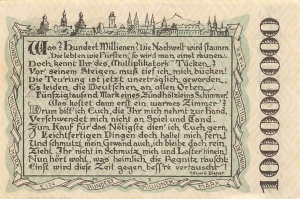 Was? Hundert Millionen? Die Nachwelt wird staunen.
Die lebten wie Fürsten, so wird man einst raunen.
Doch, kennt Ihr des „Multiplikators" Tücken?
Vor seinem Steigen, muß tief ich mich bücken!
Die Teurung ist jetzt unerträglich geworden.
Es leiden, die Deutschen, an allen Orten.
Fünfzigtausend Mark eines Zündhölzleins Schimmer.
Was kostet dann erst ein warmes Zimmer?
Drum bitt' ich Euch, die Ihr mich nehmt zur Hand,
Verschwendet mich nicht an Spiel und Tand.
Zum Kauf für das Nötigste dien' ich Euch gern,
Leichtfertigen Dingen doch haltet mich fern!
Und schmutzt mein Gewand, ich bleibe doch rein.
Zieht Ihr nicht in Schmutz mich und Laster hinein.
Nun hört wohl, was heimlich, die Regnitz rauscht:
Einst wird diese Zeit gegen bess're vertauscht!
EIN HUNDERT MILLIONEN MARK
100000000